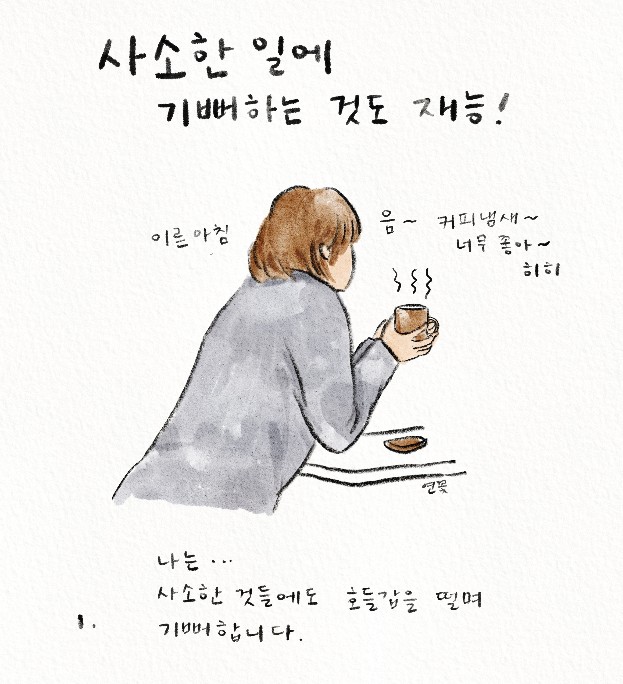 사소한 일에
기뻐하는 것도 재능!
이른 아침
음~ 커피냄새~
너무 좋아~
히히
연꽃
나는...
사소한 것들에도 호들갑을 떨며
기뻐합니다.
1.